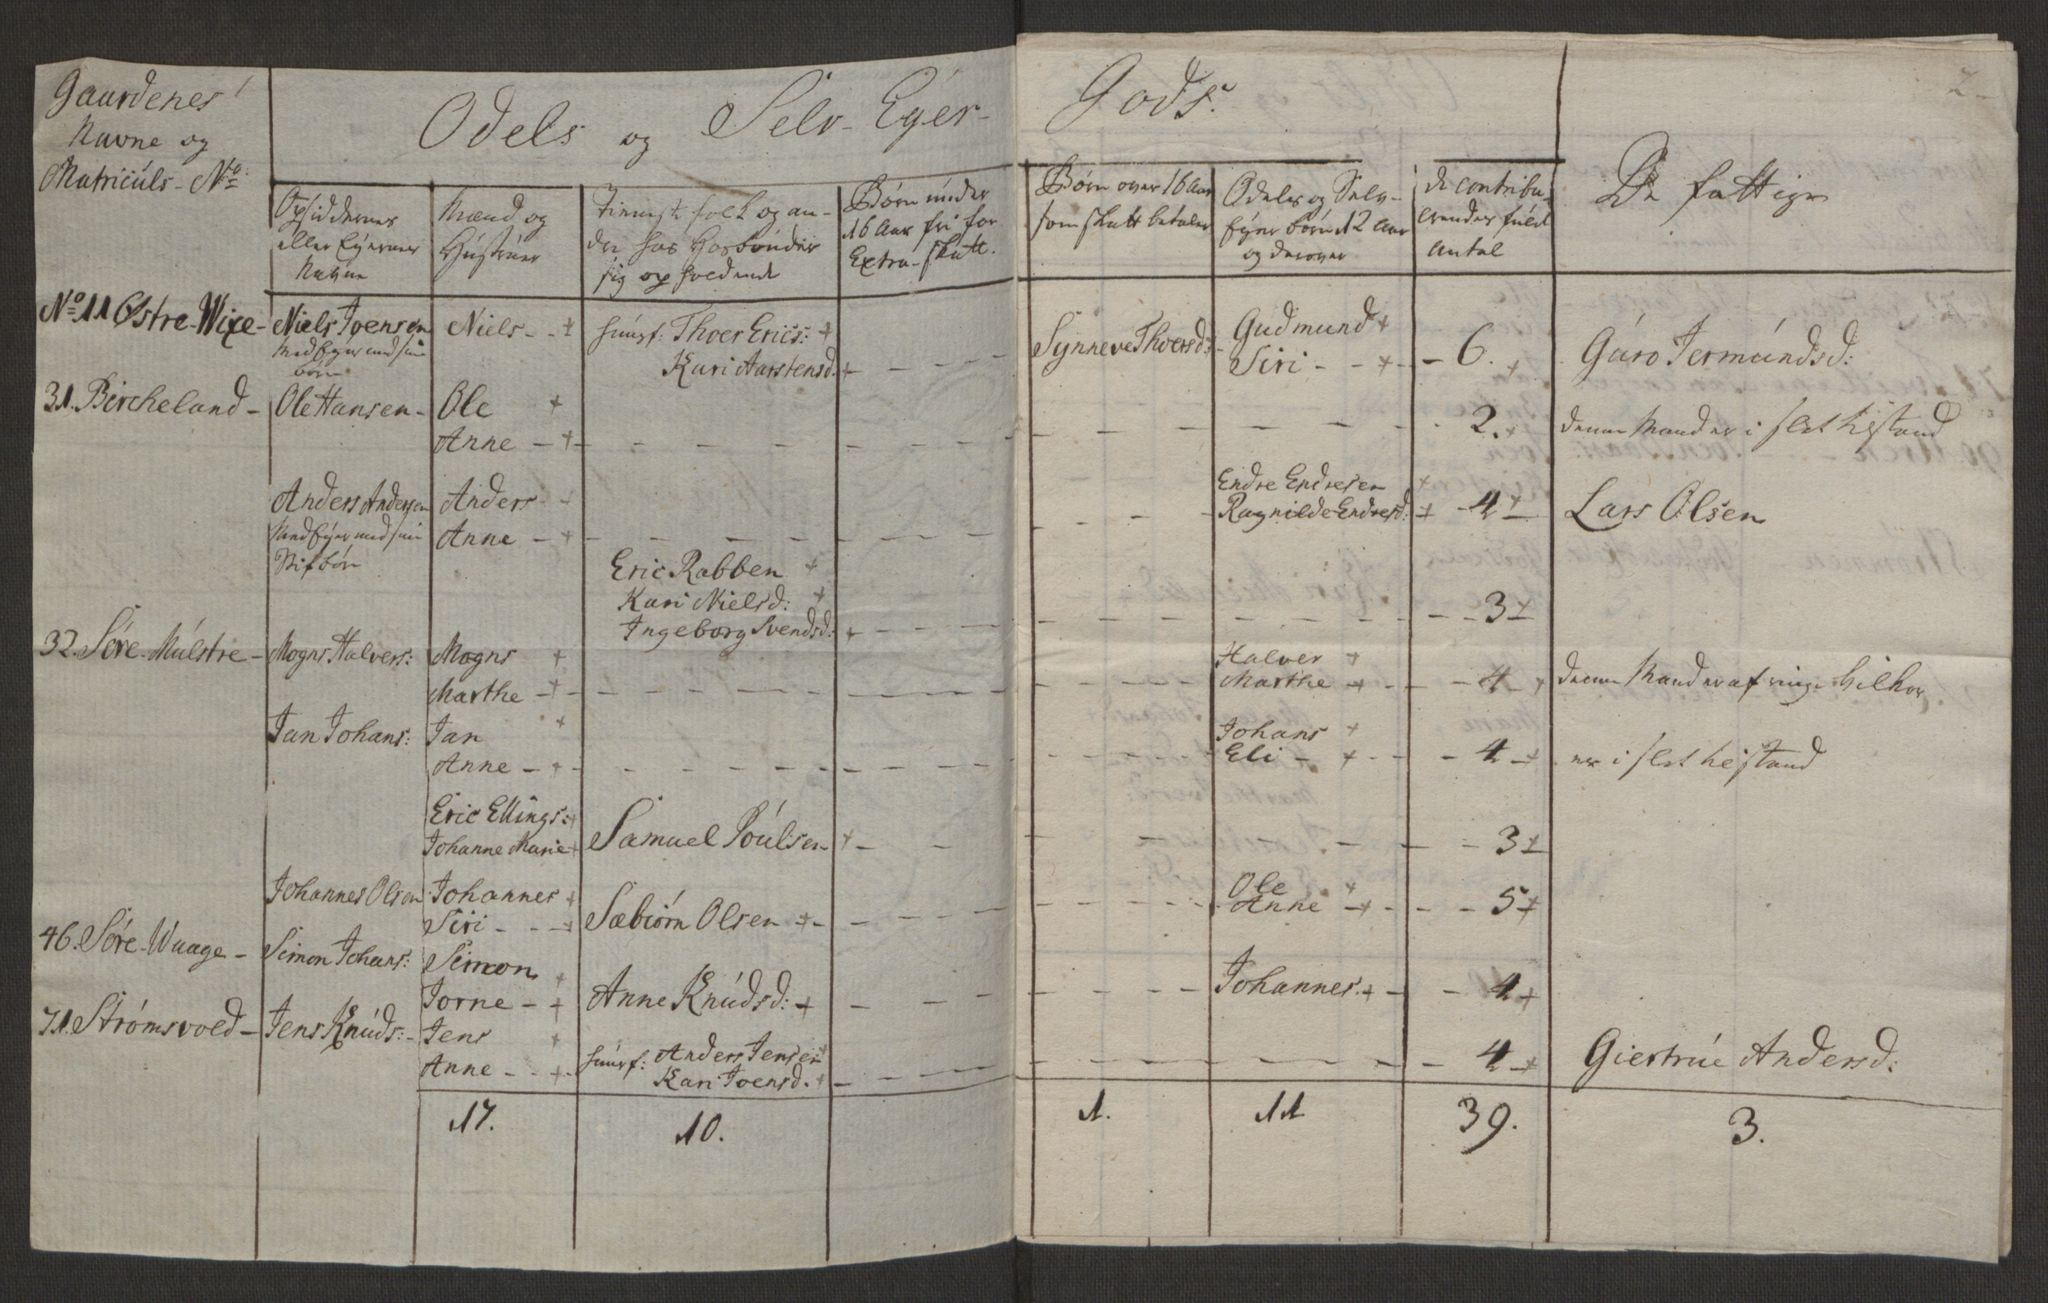 Gaardenes
Navne og
Matriculs-No:
Odels og Selv-Eyer-
Gods.
Opsiddernes
eller Eyernes
Navne
Mænd og
Hustruer
Tienneste folk og an-
dre hos Hosbonder
sig opholdende
Børn under
16 Aar fri for
Extra-skatt.
Børn over 16 Aar
som skatt betaler
Odels og Selv-
Eyer børn 12 Aar
og derover
de contribu-
erendes fuld
Antal
De fattige
No 11 Østre-Wixe- Niels Joensen Niels - + huusf: Thoer Erics: + Synneve Thoersd: Gudmund +
Medeyer med sine Kari Aarstensd. + - - - Siri - - + - - 6. + Guro Jermundsd:
børn
31. Bircheland - Ole Hansen - Ole +
Anne - + - - - - 2. + denne Mand er i slet tilstand
Anders Andersen Anders - - Endre Endresen +
Medeyer med sine Anne - + - - - Ragnilde Endresd: + - 4 + Lars Olsen
Stifbørn
Eric Rabben +
Kari Nielsd: + - - 3 +
Ingeborg Svendsd: + - - -
32. Søre-Mulstre - Mogns Halvers: Mogns + Halver +
Marthe - + - - - Marthe - + - - 4 - + denne Mand er af ringe Vilkor
Jan Johans: Jan + Johans +
Anne - + - - - Eli - + - - 4 - + er i slet tilstand
Eric Ellings: +
Johanne Marie + Samuel Poulsen - + - - 3 +
Johannes Olsen Johannes + Ole +
Siri - - + Sæbiørn Olsen - + - - Anne - + - - 5 +
46. Søre-Waage - Simon Johans: Simon +
Jorne - + Anne Knudsd: + - - - Johannes. + - - 4 +
71. Strømsvold - Jens Knuds: - Jens +
Anne - - + - huusf: Anders Jensen + - - 4 - + Giertrue Andersd:
Kari Joensd. +
17. 10. 1. 11 39. 3.